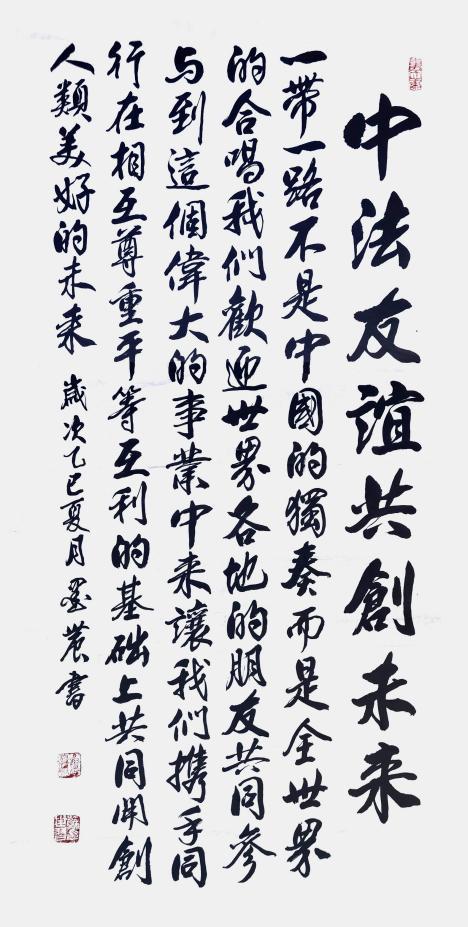 中法友誼共創未来
一帶一路不是中國的獨奏而是全世界
的合唱我们歡迎世界各地的朋友共同參
与到這個偉大的事業中来讓我们携手同
行在相互尊重平等互利的基础上共同開創
人類美好的未来 歲次乙巳夏月 墨農書